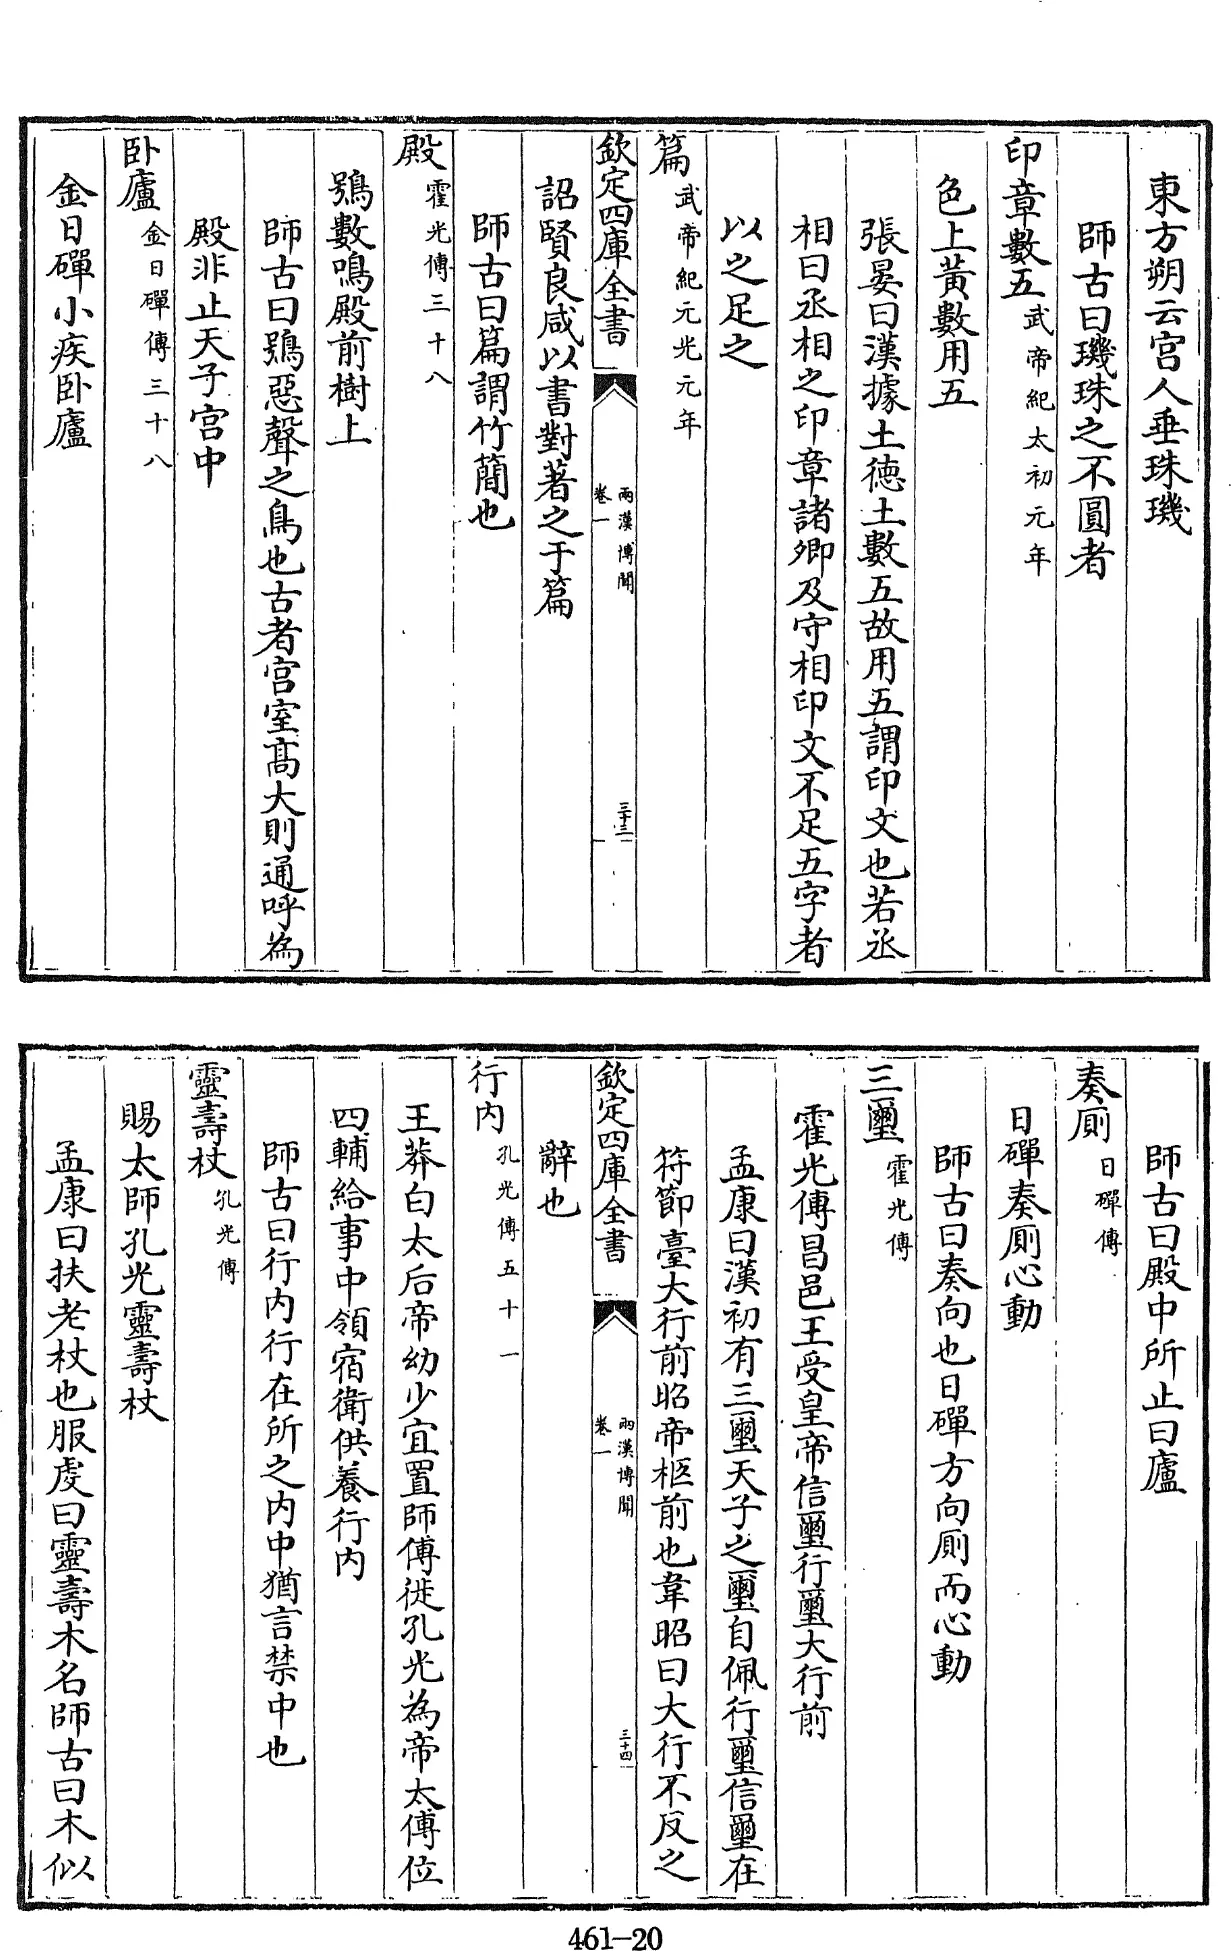 東方朔云宫人垂珠璣
師古曰璣珠之不圓者
印章數五武帝紀太初元年
色上黄數用五
張晏曰漢據土徳土數五故用五謂印文也若丞
相曰丞相之印章諸卿及守相印文不足五字者
以之足之
篇武帝紀元光元年
欽定四庫全書
兩漢博聞
卷一
三十三
詔賢良咸以書對著之于篇
師古曰篇謂竹簡也
殿霍光傳三十八
鴞數鳴殿前樹上
師古曰鴞惡聲之鳥也古者宫室髙大則通呼為
殿非止天子宫中
卧廬金日磾傳三十八
金日磾小疾卧廬
師古曰殿中所止曰廬
奏厠日磾傳
日磾奏厠心動
師古曰奏向也日磾方向厠而心動
三璽霍光傳
霍光傳昌邑王受皇帝信璽行璽大行前
孟康曰漢初有三璽天子之璽自佩行璽信璽在
符節臺大行前昭帝柩前也韋昭曰大行不反之
欽定四庫全書
兩漢博聞
卷一
三十四
辭也
行内孔光傳五十一
王莽白太后帝幼少宜置師傅徙孔光為帝太傅位
四輔給事中領宿衛供養行内
師古曰行内行在所之内中猶言禁中也
靈壽杖孔光傳
賜太師孔光靈壽杖
孟康曰扶老杖也服虔曰靈壽木名師古曰木似
461-20